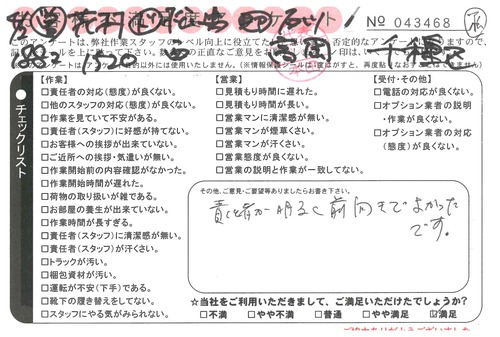 No 043468
このアンケートは、弊社作業スタッフのレベル向上に役立てた
チェックリスト
【作業】
□責任者の対応(態度)が良くない。
□他のスタッフの対応(態度)が良くない。
□作業を見ていて不安がある。
□責任者(スタッフ)に好感が持てない。
□お客様への挨拶が出来ていない。
□ご近所への挨拶・気遣いが無い。
□作業開始前の内容確認がなかった。
□作業開始時間が遅れた。
□荷物の取り扱いが雑である。
□お部屋の養生が出来ていない。
□作業時間が長すぎる。
□責任者(スタッフ)に清潔感が無い。
□責任者(スタッフ)が汗くさい。
□トラックが汚い。
□梱包資材が汚い。
□運転が不安(下手)である。
□靴下の履き替えをしてない。
□スタッフにやる気がみられない。
【営業】
□見積もり時間に遅れた。
□見積もり時間が長い。
□営業マンに清潔感が無い。
□営業マンが煙草くさい。
□営業マンが汗くさい。
□営業態度が良くない。
□営業の説明と作業が一致してない。
【受付・その他】
□電話の対応が良くない。
□オプション業者の説明
・作業が良くない。
□オプション業者の対応
(態度)が良くない。
その他、ご意見・ご要望等ありましたらお書き下さい。
責任者が明るく前向きでよかった
です。
☆当社をご利用いただきまして、ご満足いただけたでしょうか?
□不満 □やや不満 □普通 □やや満足 ☑満足